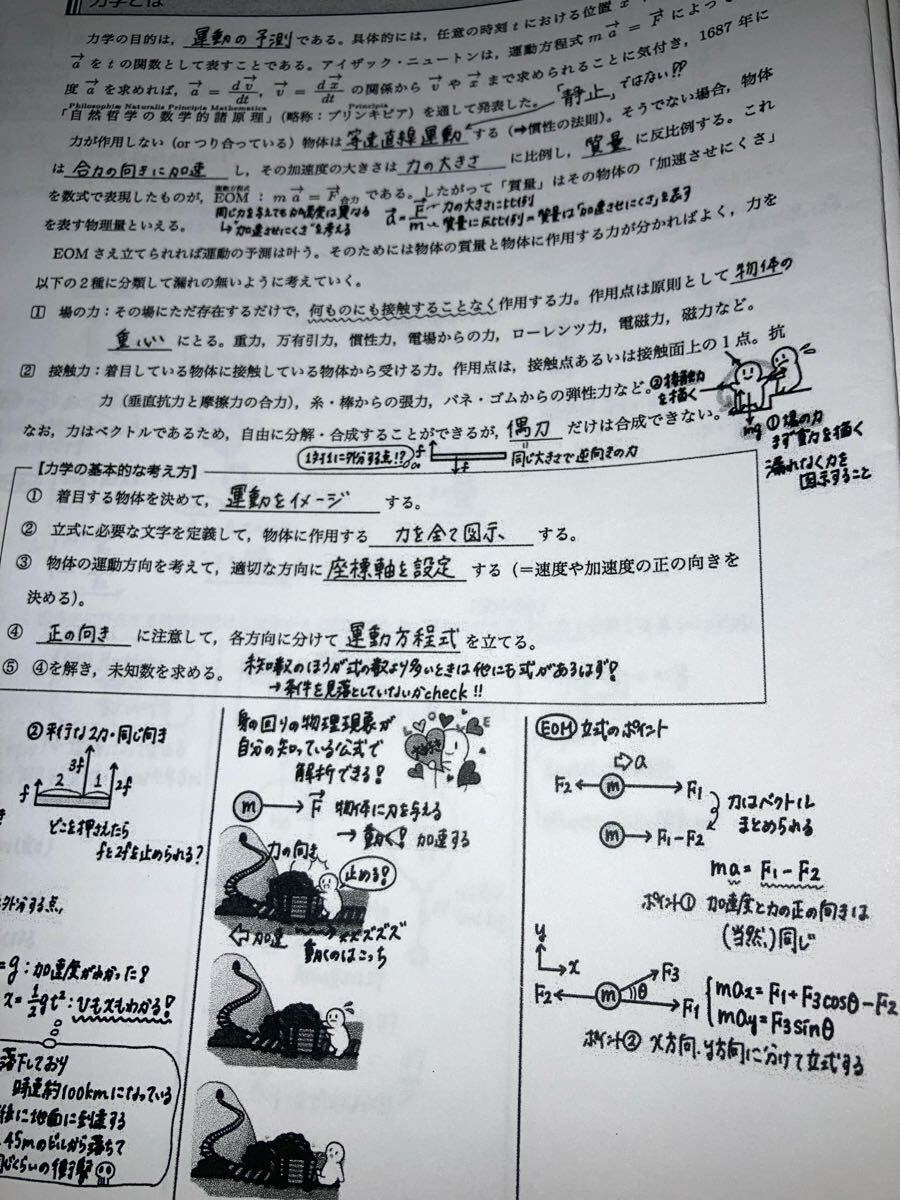 力学とは
力学の目的は，運動の予測である。具体的には，任意の時刻 t における位置 x
度 a を求めれば，a = dv/dt，v = dx/dt の関係から v や x まで求められることに気付き，1687 年に
a を t の関数として表すことである。アイザック・ニュートンは，運動方程式 m a = F によって
Philosophiæ Naturalis Principia Mathematica Principia
「自然哲学の数学的諸原理」(略称：プリンキピア) を通して発表した。「静止」ではない!?
力が作用しない (or つり合っている) 物体は 等速直線運動 する (⇒慣性の法則)。そうでない場合，物体
は 合力の向きに加速 し，その加速度の大きさは 力の大きさ に比例し，質量 に反比例する。これ
運動方程式
を数式で表現したものが，EOM：m a = F合力 である。したがって「質量」はその物体の「加速させにくさ」
を表す物理量といえる。
同じ力を与えても加速度は異なる
↳"加速させにくさ"を考える
a = F/m ←力の大きさに比例
質量に反比例=質量は「加速させにくさ」を表す
EOM さえ立てられれば運動の予測は叶う。そのためには物体の質量と物体に作用する力が分かればよく，力を
以下の 2 種に分類して漏れの無いように考えていく。
1 場の力：その場にただ存在するだけで，何ものにも接触することなく作用する力。作用点は原則として 物体の
重心 にとる。重力，万有引力，慣性力，電場からの力，ローレンツ力，電磁力，磁力など。
2 接触力：着目している物体に接触している物体から受ける力。作用点は，接触点あるいは接触面上の 1 点。抗
力 (垂直抗力と摩擦力の合力)，糸・棒からの張力，バネ・ゴムからの弾性力など。
②接触力
を描く
mg
①場の力
まず重力を描く
漏れなく力を
図示すること
なお，力はベクトルであるため，自由に分解・合成することができるが，偶力 だけは合成できない。
1対1に外分する点!?
f
f
同じ大きさで逆向きの力
【力学の基本的な考え方】
① 着目する物体を決めて，運動をイメージ する。
② 立式に必要な文字を定義して，物体に作用する 力を全て図示 する。
③ 物体の運動方向を考えて，適切な方向に 座標軸を設定 する (＝速度や加速度の正の向きを
決める)。
④ 正の向き に注意して，各方向に分けて 運動方程式 を立てる。
⑤ ④を解き，未知数を求める。
未知数のほうが式の数より多いときは他にも式があるはず!
→条件を見落としていないかcheck!!
②平行な2力・同じ向き
3f
f 2 1 2f
どこを押さえたら
fと2fを止められる?
外分する点，
=g：加速度がわかった!
x=1/2gt²：vもxもわかる!
落下しており
時速約100kmになっている
後に地面に到達する
45mのビルから落ちて
同じくらいの衝撃
身の回りの物理現象が
自分の知っている公式で
解析できる!
m → F 物体に力を与える
→動く! 加速する
力の向き
止める!
⇦加速
ズズズズ
動くのはこっち
EOM 立式のポイント
⇨a
F2 ← m → F1
m → F1-F2
力はベクトル
まとめられる
ma = F1-F2
ポイント① 加速度と力の正の向きは
(当然，)同じ
y
x
F2 m θ F3
F1
max = F1+F3cosθ-F2
may = F3sinθ
ポイント② x方向，y方向に分けて立式する